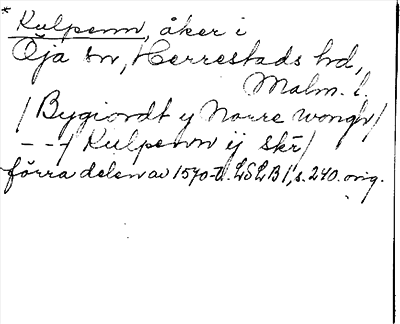 * Kulpenn, åker i
Öja sn, Herrestads hd,
Malm. l.
/Bygiordt y Norre wongh/
- - -/ Kulpenn ij skr/
förra delen av 1570-t. LSLB 1, s. 240. orig.